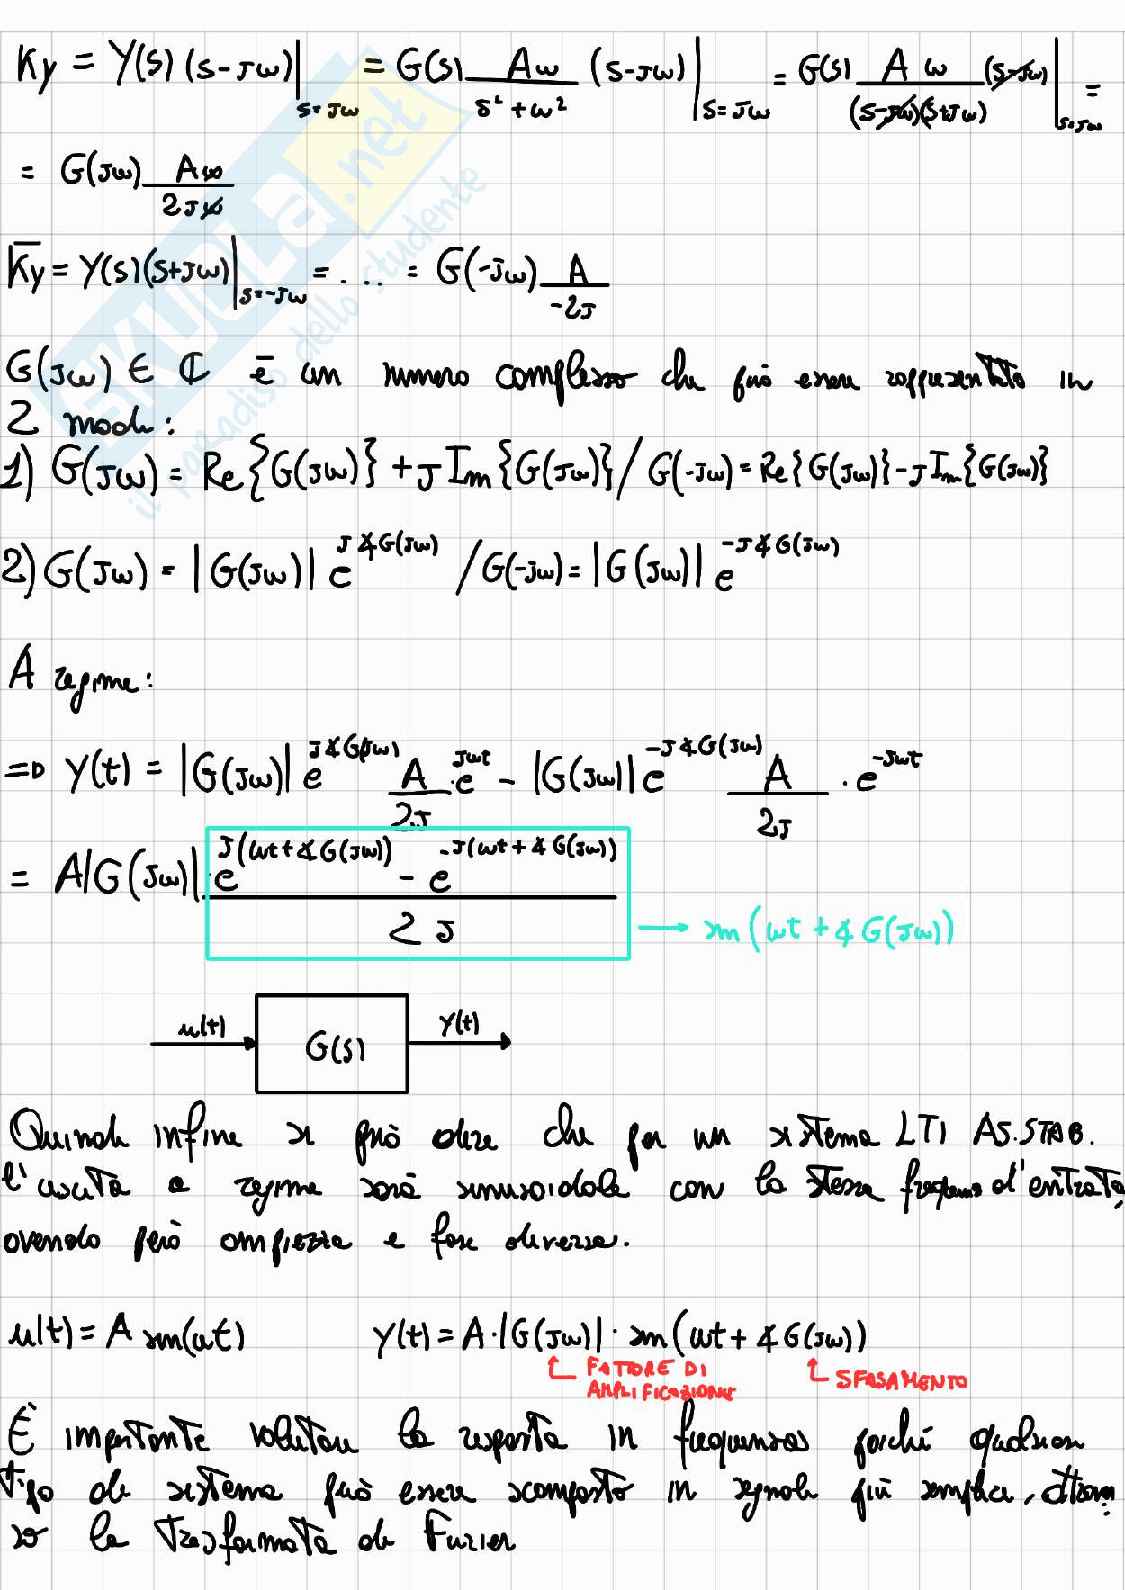 Ky = Y(s) (s-Jω)|s=Jω = G(s) Aω/(s²+ω²) (s-Jω)|s=Jω = G(s) A ω/((s-Jω)(s+Jω)) (s-Jω)|s=Jω =
= G(Jω) Aω/(2Jω)
K̄y = Y(s)(s+Jω)|s=-Jω = ... = G(-Jω) A/(-2J)
G(Jω) ∈ ℂ è un numero complesso che può essere rappresentato in
2 modi:
1) G(Jω) = Re{G(Jω)} + J Im{G(Jω)} / G(-Jω) = Re{G(Jω)} - J Im{G(Jω)}
2) G(Jω) = |G(Jω)| e^(J∡G(Jω)) / G(-Jω) = |G(Jω)| e^(-J∡G(Jω))
A regime:
=> Y(t) = |G(Jω)| e^(J∡G(Jω)) A/(2J) · e^(Jωt) - |G(Jω)| e^(-J∡G(Jω)) A/(2J) · e^(-Jωt)
= A|G(Jω)| · (e^(J(ωt+∡G(Jω))) - e^(-J(ωt+∡G(Jω))))/(2J) → sin(ωt + ∡G(Jω))
u(t) G(s) Y(t)
Quindi infine si può dire che per un sistema LTI AS.STAB.
l'uscita a regime sarà sinusoidale con la stessa frequenza d'entrata,
avendo però ampiezza e fase diversa.
u(t) = A sin(ωt) Y(t) = A·|G(Jω)| · sin(ωt + ∡G(Jω))
FATTORE DI AMPLIFICAZIONE SFASAMENTO
È importante valutare la risposta in frequenza perché qualsiasi
tipo di sistema può essere scomposto in segnali più semplici, attraver
so la trasformata di Furier
SKUOLA.net
il paradiso dello studente